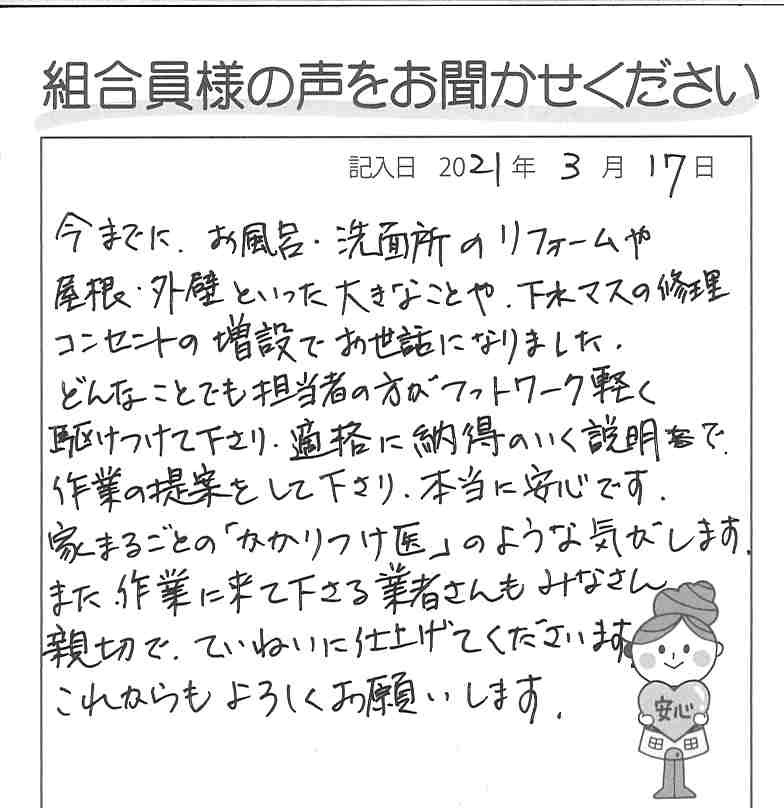 組合員様の声をお聞かせください
記入日 2021年 3月 17日
今までに、お風呂・洗面所のリフォームや
屋根・外壁といった大きなことや、下水マスの修理
コンセントの増設でお世話になりました。
どんなことでも担当者の方がフットワーク軽く
駆けつけて下さり、適格に納得のいく説明で、
作業の提案をして下さり、本当に安心です。
家まるごとの「かかりつけ医」のような気がします。
また、作業に来て下さる業者さんもみなさん
親切で、ていねいに仕上げてくださいます。
これからもよろしくお願いします。
安心